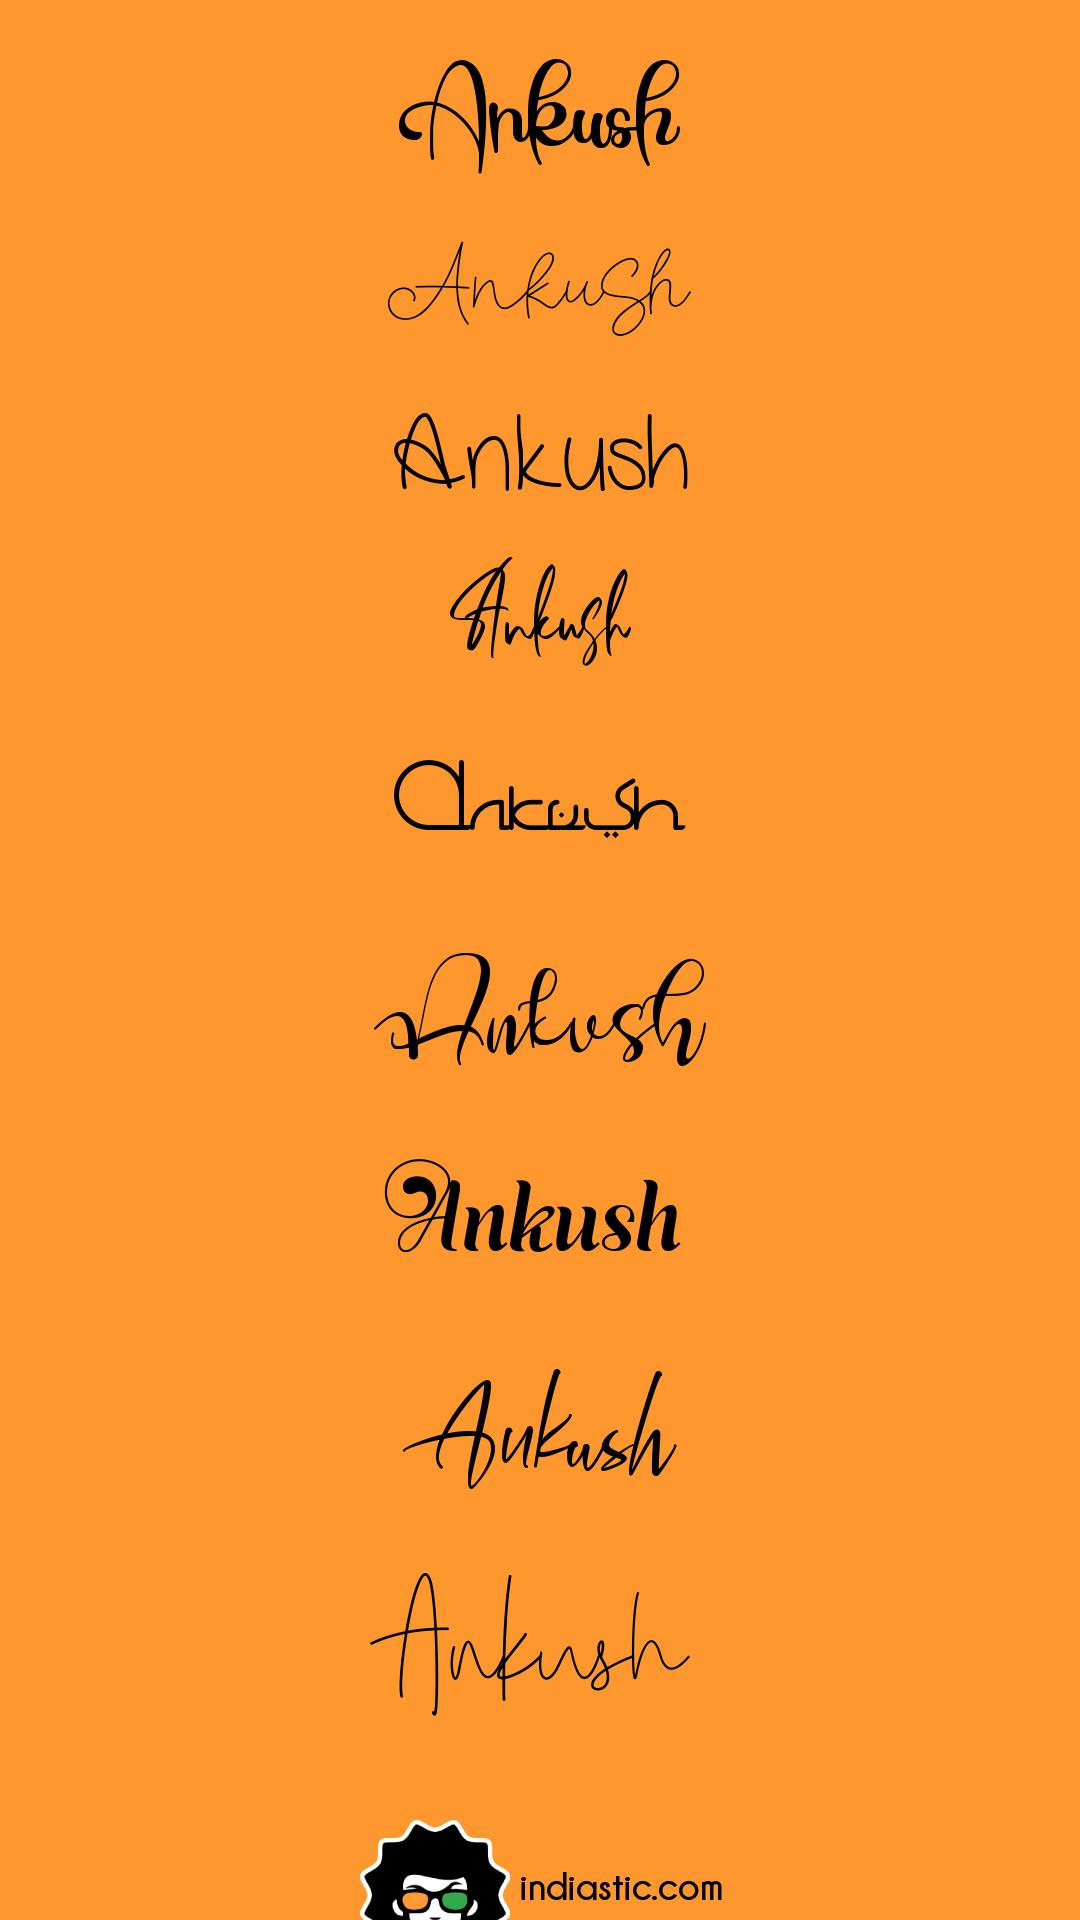 Ankush
Ankush
Ankush
Ankush
Ankush
Ankush
Ankush
Ankush
Ankush
indiastic.com